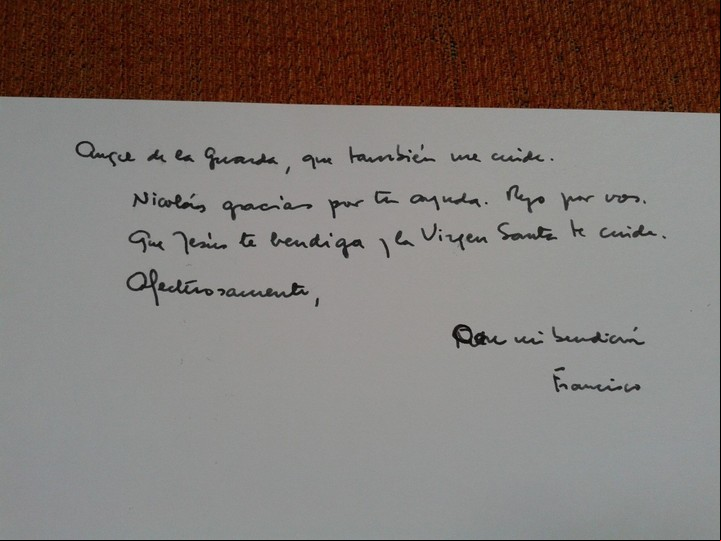 Angel de la Guarda, que también me cuide.
Nicolás gracias por tu ayuda. Rezo por vos.
Que Jesús te bendiga y la Virgen Santa te cuide.
Afectuosamente,
Con mi bendición
Francisco